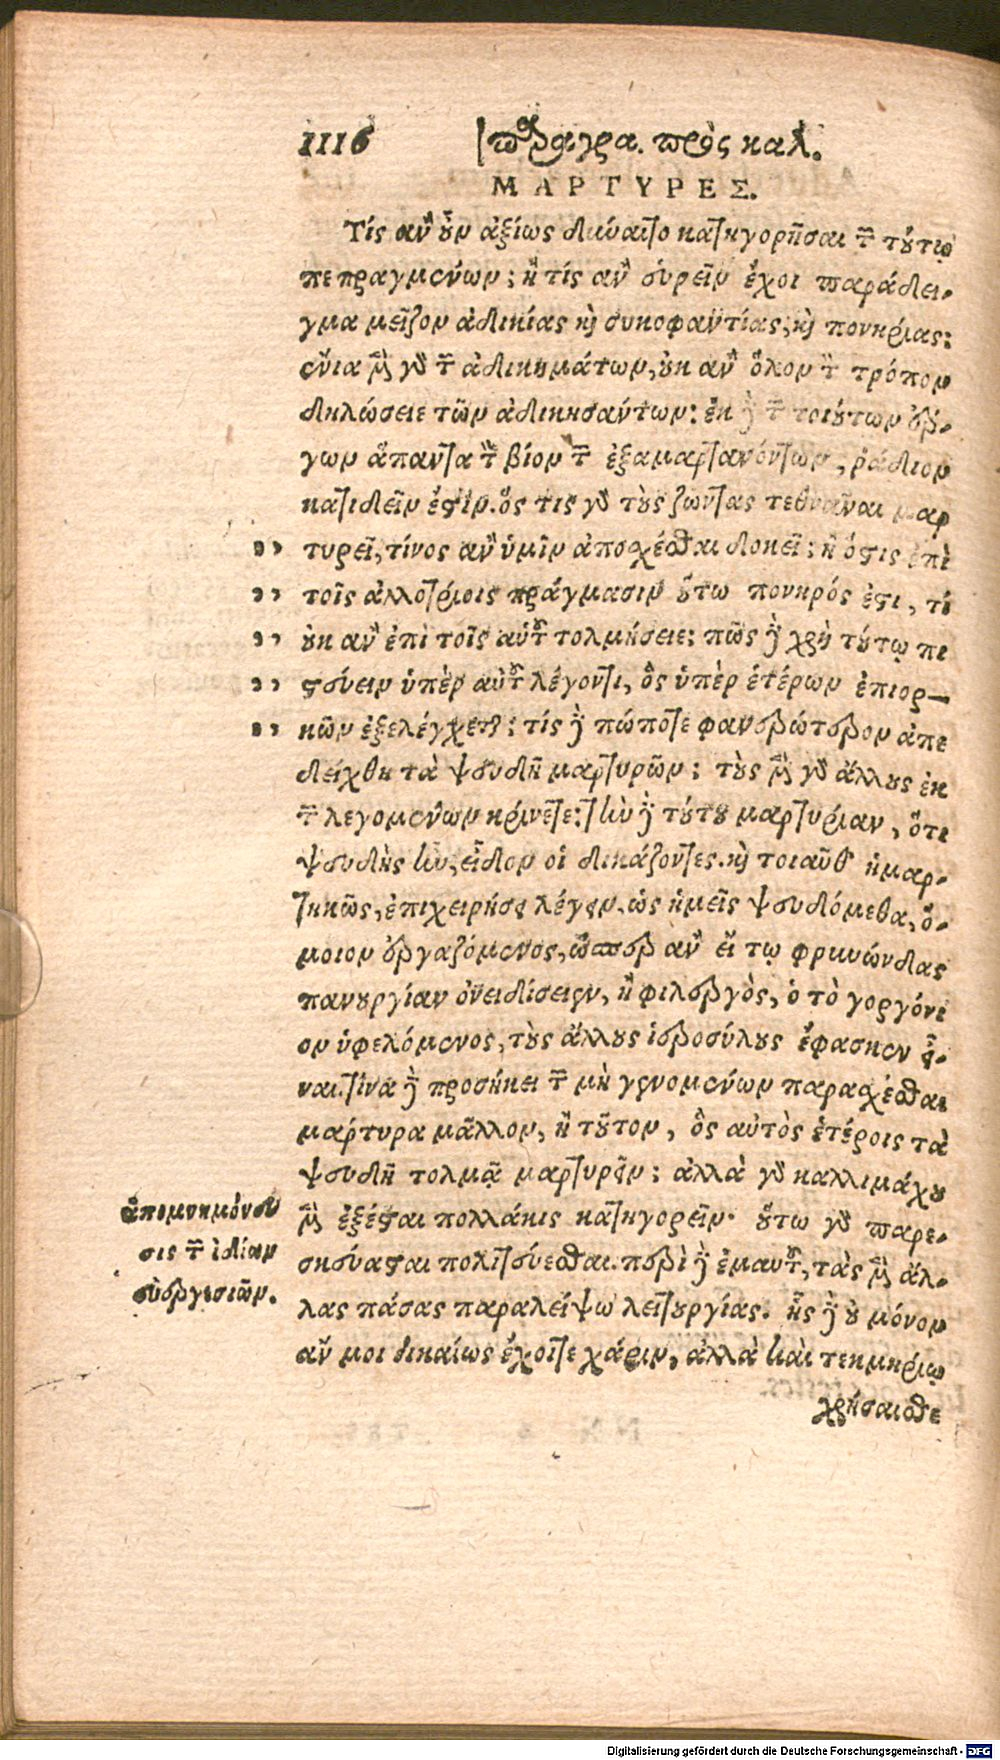 1116 παραγρα. πρὸς καλ.
ΜΑΡΤΥΡΕΣ.
Τίς ἂν οὖν ἀξίως δύναιτο κατηγορῆσαι τῶν τούτῳ
πεπραγμένων; ἢ τίς ἂν εὑρεῖν ἔχοι παράδει-
γμα μεῖζον ἀδικίας καὶ συκοφαντίας, καὶ πονηρίας;
ἔνια μὲν γὰρ τῶν ἀδικημάτων, οὐκ ἂν ὅλον τὸν τρόπον
δηλώσειε τῶν ἀδικησάντων: ἐκ δὲ τῶν τοιούτων ἔρ-
γων ἅπαντα τὸν βίον τῶν ἐξαμαρτανόντων, ῥᾴδιον
κατιδεῖν ἐστίν. ὅς τις γὰρ τοὺς ζῶντας τεθνᾶναι μαρ
τυρεῖ, τίνος ἂν ὑμῖν ἀποσχέσθαι δοκεῖ; ἢ ὅστις ἐπὶ
τοῖς ἀλλοτρίοις πράγμασιν οὕτω πονηρός ἐστι, τί
οὐκ ἂν ἐπὶ τοῖς αὑτοῦ τολμήσειε; πῶς δὲ χρὴ τούτῳ πι
στεύειν ὑπὲρ αὑτοῦ λέγοντι, ὃς ὑπὲρ ἑτέρων ἐπιορ-
κῶν ἐξελέγχεται; τίς δὲ πώποτε φανερώτερον ἀπε
δείχθη τὰ ψευδῆ μαρτυρῶν; τοὺς μὲν γὰρ ἄλλους ἐκ
τῶν λεγομένων κρίνετε: τὴν δὲ τούτου μαρτυρίαν, ὅτι
ψευδὴς ἦν, εἶδον οἱ δικάζοντες. καὶ τοιαῦθ' ἡμαρ-
τηκὼς, ἐπιχειρήσει λέγειν, ὡς ἡμεῖς ψευδόμεθα, ὅ-
μοιον ἐργαζόμενος, ὥσπερ ἂν εἴ τῳ φρυνώνδας
πανουργίαν ὀνειδίσειεν, ἢ φιλεργὸς, ὁ τὸ γοργόνι
ον ὑφελόμενος, τοὺς ἄλλους ἱεροσύλους ἔφασκεν εἶ-
ναι. τίνα δὲ προσήκει τῶν μὴ γενομένων παρασχέσθαι
μάρτυρα μᾶλλον, ἢ τοῦτον, ὃς αὐτὸς ἑτέροις τὰ
ψευδῆ τολμᾷ μαρτυρεῖν; ἀλλὰ γὰρ καλλιμάχου
μὲν ἐξέσται πολλάκις κατηγορεῖν· οὕτω γὰρ παρε-
σκεύασται πολιτεύεσθαι. περὶ δὲ ἐμαυτοῦ, τὰς μὲν ἄλ-
λας πάσας παραλείψω λειτουργίας. ἧς δὲ οὐ μόνον
ἄν μοι δικαίως ἔχοιτε χάριν, ἀλλὰ καὶ τεκμηρίῳ
χρήσαισθε
ἀπομνημόνευ
σις τῶν ἰδίων
εὐεργεσιῶν.
Digitalisierung gefördert durch die Deutsche Forschungsgemeinschaft - DFG